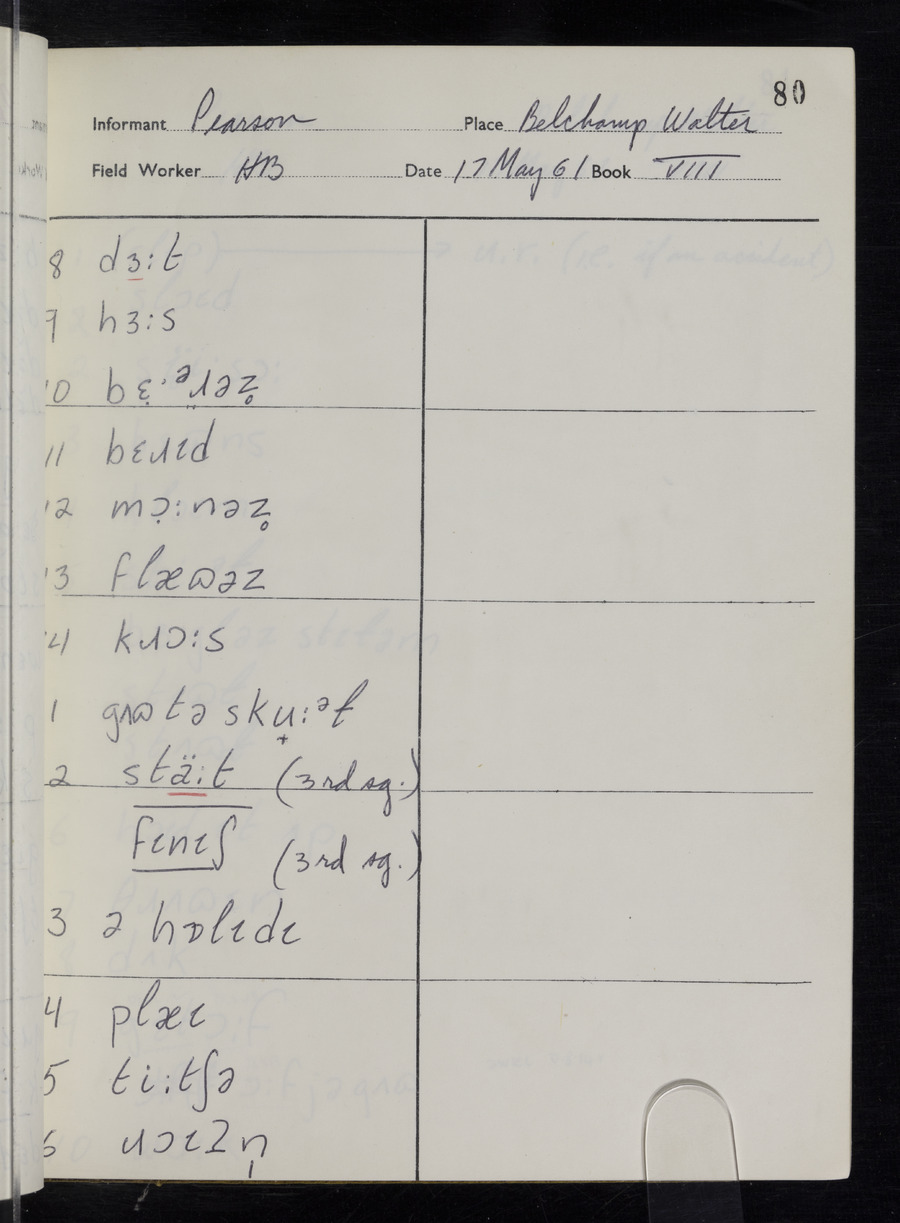 80
Informant Pearson Place Belchamp Walter
Field Worker HB Date 17 May 61 Book VIII
8 dɜ:t
9 hɜ:s
10 bɛ̣:ᵊɹ̈əz̥
11 bɛɹɪd
12 mɔ̣:nəz̥
13 flæʊəz
14 kɹɔ:s
1 gʌʊ tə skụ̟:ᵊɫ
2 stä:t (3rd sg.)
fɪnɪʃ (3rd sg.)
3 ə hɒlɪdɪ
4 plæɪ
5 ti:tʃə
6 ɹɔɪzn̩